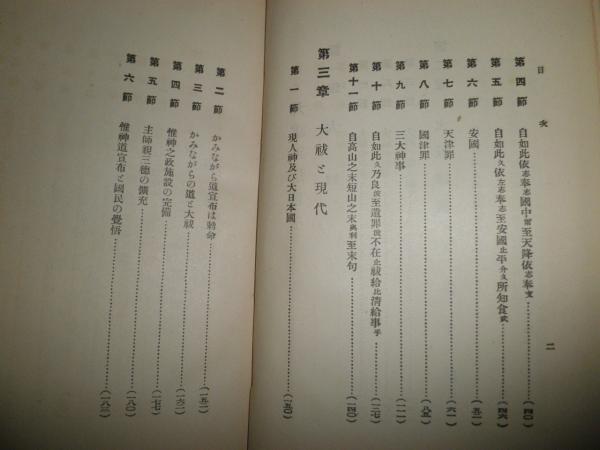 目次
二
第四節 自如此依志奉志國中爾至天降依志奉支……(四〇)
第五節 自如此久依左志奉志至安國止平介久所知食武……(四六)
第六節 安國……(五一)
第七節 天津罪……(六一)
第八節 國津罪……(八五)
第九節 三大神事……(一一一)
第十節 自如此久乃良波至遺罪波不在止祓給比淸給事乎……(一二七)
第十一節 自高山之末短山之末與利至末句……(一四〇)
第三章 大祓と現代
第一節 現人神及び大日本國……(一五〇)
第二節 かみながら道宣布は勅命……(一五一)
第三節 かみながらの道と大祓……(一六一)
第四節 惟神之政施設の完備……(一六二)
第五節 主師親三德の擴充……(一七七)
第六節 惟神道宣布と國民の覺悟……(一八三)